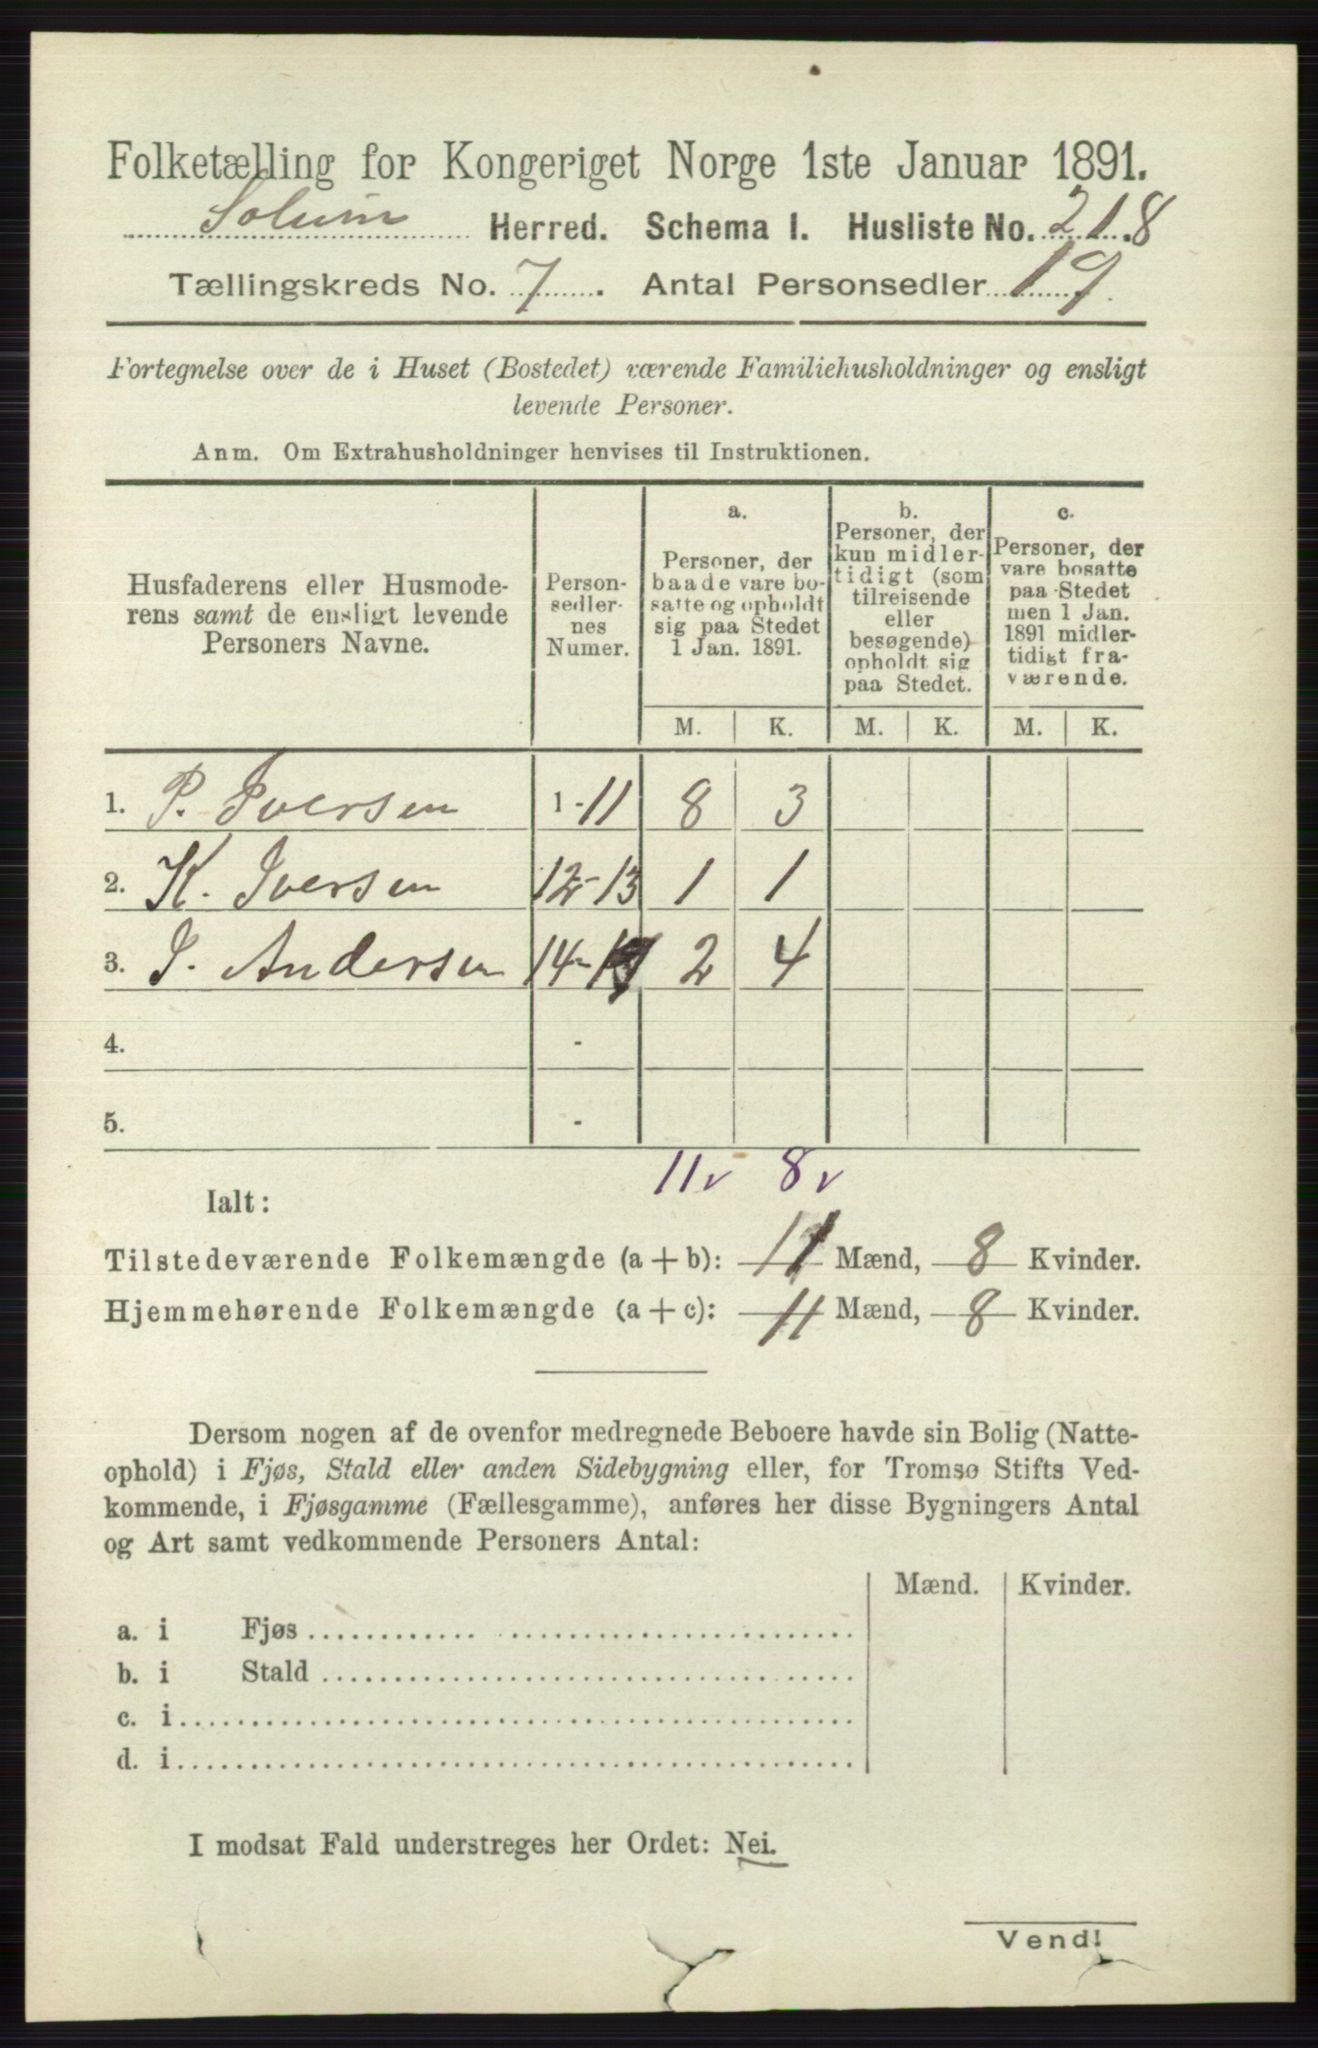 Folketælling for Kongeriget Norge 1ste Januar 1891.
Solum Herred. Schema I. Husliste No. 218
Tællingskreds No. 7. Antal Personsedler 19.
Fortegnelse over de i Huset (Bostedet) værende Familiehusholdninger og ensligt
levende Personer.
Anm. Om Extrahusholdninger henvises til Instruktionen.
Husfaderens eller Husmode-
rens samt de ensligt levende
Personers Navne.
Person-
sedler-
nes
Numer.
a.
Personer, der
baade vare bo-
satte og opholdt
sig paa Stedet
1 Jan. 1891.
b.
Personer, der
kun midler-
tidigt (som
tilreisende
eller
besøgende)
opholdt sig
paa Stedet.
c.
Personer, der
vare bosatte
paa Stedet
men 1 Jan.
1891 midler-
tidigt fra-
værende.
M. K. M. K. M. K.
1. P. Iversen 1-11 8 3
2. K. Iversen 12-13 1 1
3. J. Andersen 14-19 2 4
4. -
5. -
11 v 8 v
Ialt:
Tilstedeværende Folkemængde (a + b): 11 Mænd, 8 Kvinder.
Hjemmehørende Folkemængde (a + c): 11 Mænd, 8 Kvinder.
Dersom nogen af de ovenfor medregnede Beboere havde sin Bolig (Natte-
ophold) i Fjøs, Stald eller anden Sidebygning eller, for Tromsø Stifts Ved-
kommende, i Fjøsgamme (Fællesgamme), anføres her disse Bygningers Antal
og Art samt vedkommende Personers Antal:
Mænd. Kvinder.
a. i Fjøs
b. i Stald
c. i
d. i
I modsat Fald understreges her Ordet: Nei.
Vend!